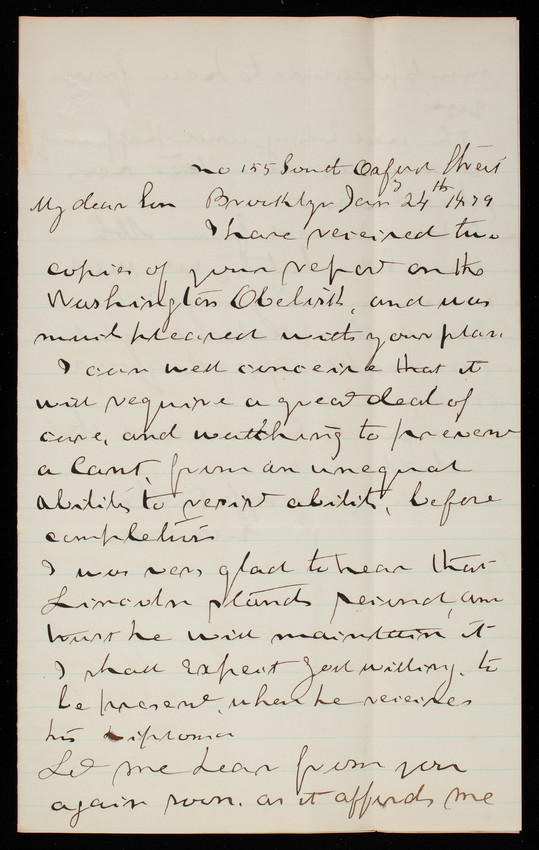 No 155 South Oxford Street
My dear Son Brooklyn Jany 24th 1879
I have received two
copies of your report on the
Washington Obelisk, and was
much pleased with your plan.
I can well conceive that it
will require a great deal of
care, and watching to prevent
a cant, from an unequal
ability to resist ability, before
completion
I was very glad to hear that
Lincoln stands second, am
he will maintain it
I shall expect God willing, to
be present, when he receives
his Diploma
Let me hear from you
again soon. as it affords me